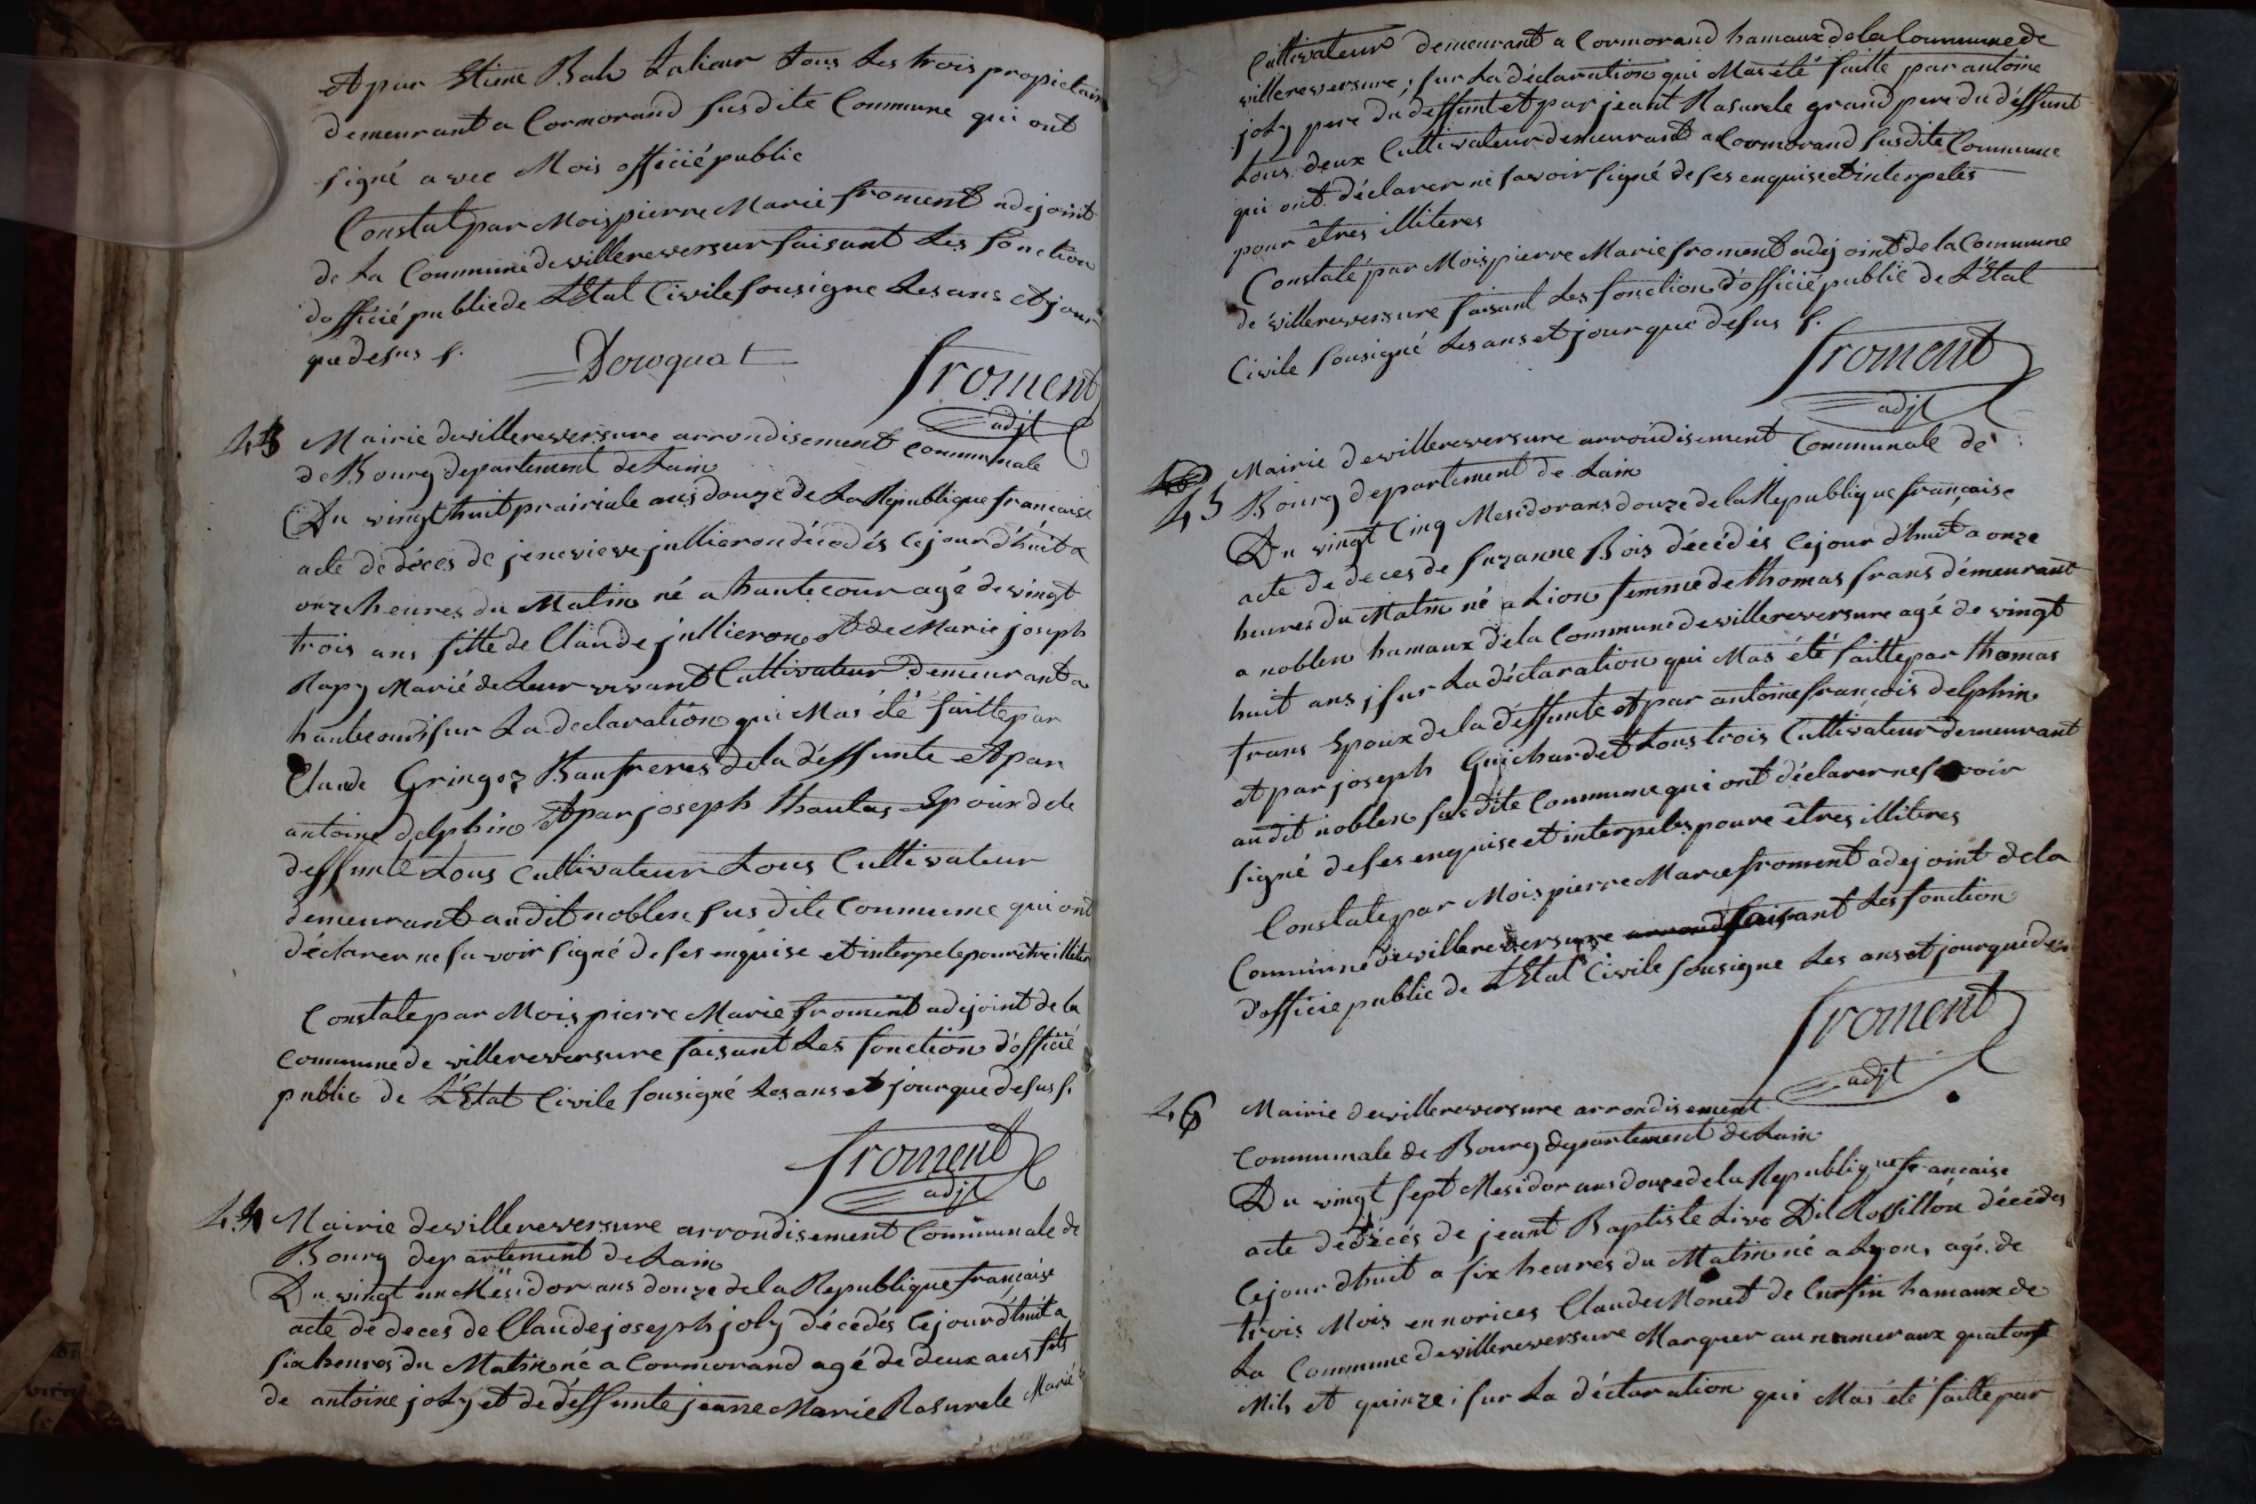 et par Etiene Bah talieur tous les trois propietair
demeurant a Cormorand susdite Commune qui ont
signé avec Mois officié public
Constat par Mois pierre Marie froment adejoint
de la Commune de villereversur faisant les fonction
dofficié publicde LEtat Civile sousigne les ans et jour
que desus f.
Derognat froment
adjt
43 Mairie devillereversure arrondisement communale
de Bourg departement de Lain
Du vingt huit prairiale ans douze de La Republique francaise
acte de déces de jenevieve jullieron décédés cejourdhuit a
onze heures du Matin né a hautecour agé de vingt
trois ans fille de Claude jullieron et de Marie joseph
Rapy Marié de Leur vivant Cultivateur demeurant a
hautecour; sur La declaration qui Mas été faitte par
Claude Gringoz Baufreres dela déffunte et par
antoine delphin et par joseph thaulas Epoux dela
deffunte tous Cultivateur tous Cultivateur
demeurant audit noblen susdite Commune qui ont
déclarer ne savoir signé de ses enquise et interpele pour être illiter
Constate par Mois pierre Marie froment adejoint de la
commune de villereversure faisant les fonction dofficié
public de LEtat Civile sousigné les ans et jour que desus f.
froment
adjt
44 Mairie devillereversure arrondisement Communale de
Bourg departement de Lain
Du vingt un Mesidor ans douze dela Republique française
acte de deces de Claude joseph joly décédés cejourdhuit a
six heures du Matin né a Cormorand agé de deux ans fils
de antoine joly et de déffunte jeanne Marie Rasurele Marié
Cultivateur demeurant a Cormorand hamaux dela Commune de
villereversure; sur La déclaration qui Mas été faitte par antoine
joly pere du deffunt et par jeant Rasurele grand pere du déffunt
tous deux Cultivateur demeurant a Cormorand susdite Commune
qui ont déclarer ne savoir signé de ses enquise et interpelés
pour êtres illiteres
Constaté par Mois pierre Marie froment adejoint de la Commune
de villereversure faisant les fonction d'officié public de L'Etat
Civile sousigné les ans et jour que désus f.
froment
adjt
45 Mairie devillereversure arrondisement Communale de
Bourg departement de Lain
Du vingt Cinq Mesidor ans douze de la Republique française
acte de deces de suzanne Bois décédés cejourdhuit a onze
heures du Matin né a Lion femme de thomas frans démeurant
a noblen hamaux dela Commune de villereversure agé de vingt
huit ans; sur La déclaration qui Mas été faitte par thomas
frans Epoux de la déffunte et par antoine françois delphin
et par joseph Guichardet tous trois Cultivateur demeurant
audit noblen susdite Commune qui ont déclarer ne savoir
signé de ses enquise et interpelés poure êtres illiteres
Constate par Mois pierre Marie froment adejoint dela
Commune de villereversure arrond faisant les fonction
d'officié public de LEtat Civile sousigne les ans et jour que des
froment
adjt
46 Mairie devillereversure arrondisement
Communale de Bourg departement de Lain
Du vingt sept Mesidor ans douze dela Republique française
acte de décés de jeant Baptiste Livo Dit Rossillon décédés
Cejourdhuit a six heures du Matin né a Lyon, agé de
trois Mois en norices Claude Monet de Cursin hamaux de
La Commune devillereversure Marquer au numeraux quatorse
Mils et quinze; sur La déclaration qui Mas été faitte par